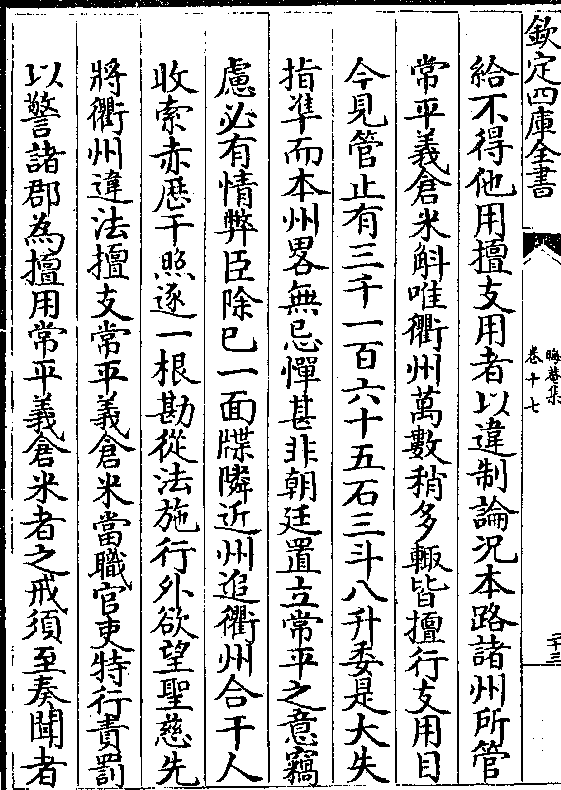 欽定四庫全書
晦菴集
卷十七
二十三
給不得他用擅支用者以違制論況本路諸州所管
常平義倉米斛唯衢州萬數稍多輙皆擅行支用目
今見管止有三千一百六十五石三斗八升委是大失
指凖而本州畧無忌憚甚非朝廷置立常平之意竊
慮必有情弊臣除已一面牒隣近州追衢州合干人
收索赤厯干照逐一根勘從法施行外欲望聖慈先
將衢州違法擅支常平義倉米當職官吏特行責罰
以警諸郡為擅用常平義倉米者之戒須至奏聞者